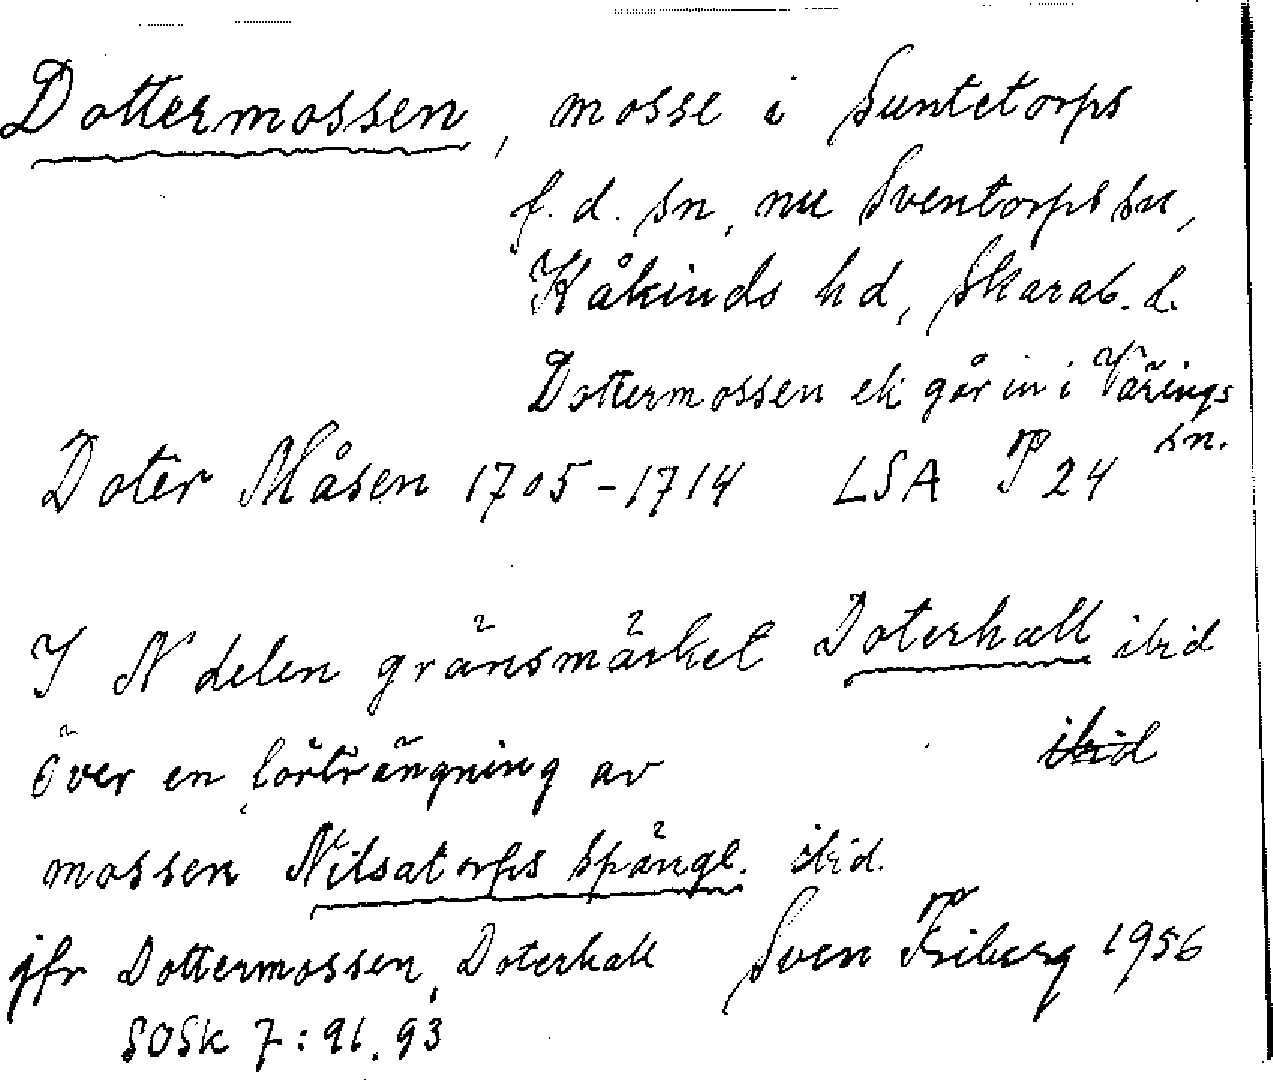 Dottermossen, mosse i Suntetorps
f. d. sn, nu Sventorps sn,
Kåkinds hd, Skarab. l.
Dottermossen ek går in i Värings
sn.
Doter Måsen 1705-1714 LSA P 24
I N delen gränsmärket Doterhall ibid
över en förträngning av ibid
mossen Nilsatorps spänge. ibid.
jfr Dottermossen, Doterhall Sven Friberg 1956
SOSk 7: 91. 93